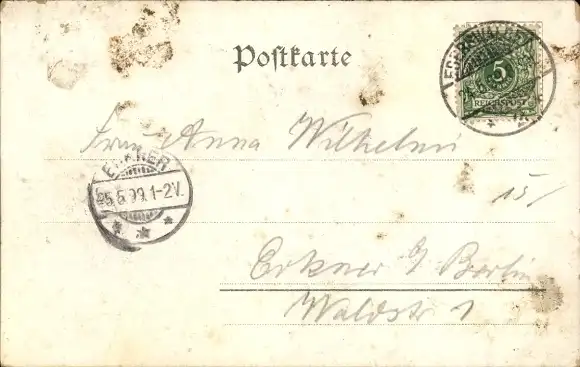 Postkarte
5
REICHSPOST
Frau Anna Wilhelmi
ERKNER
5.6.99.1-2V.
15/
Erkner b/ Berlin
Waldstr 1